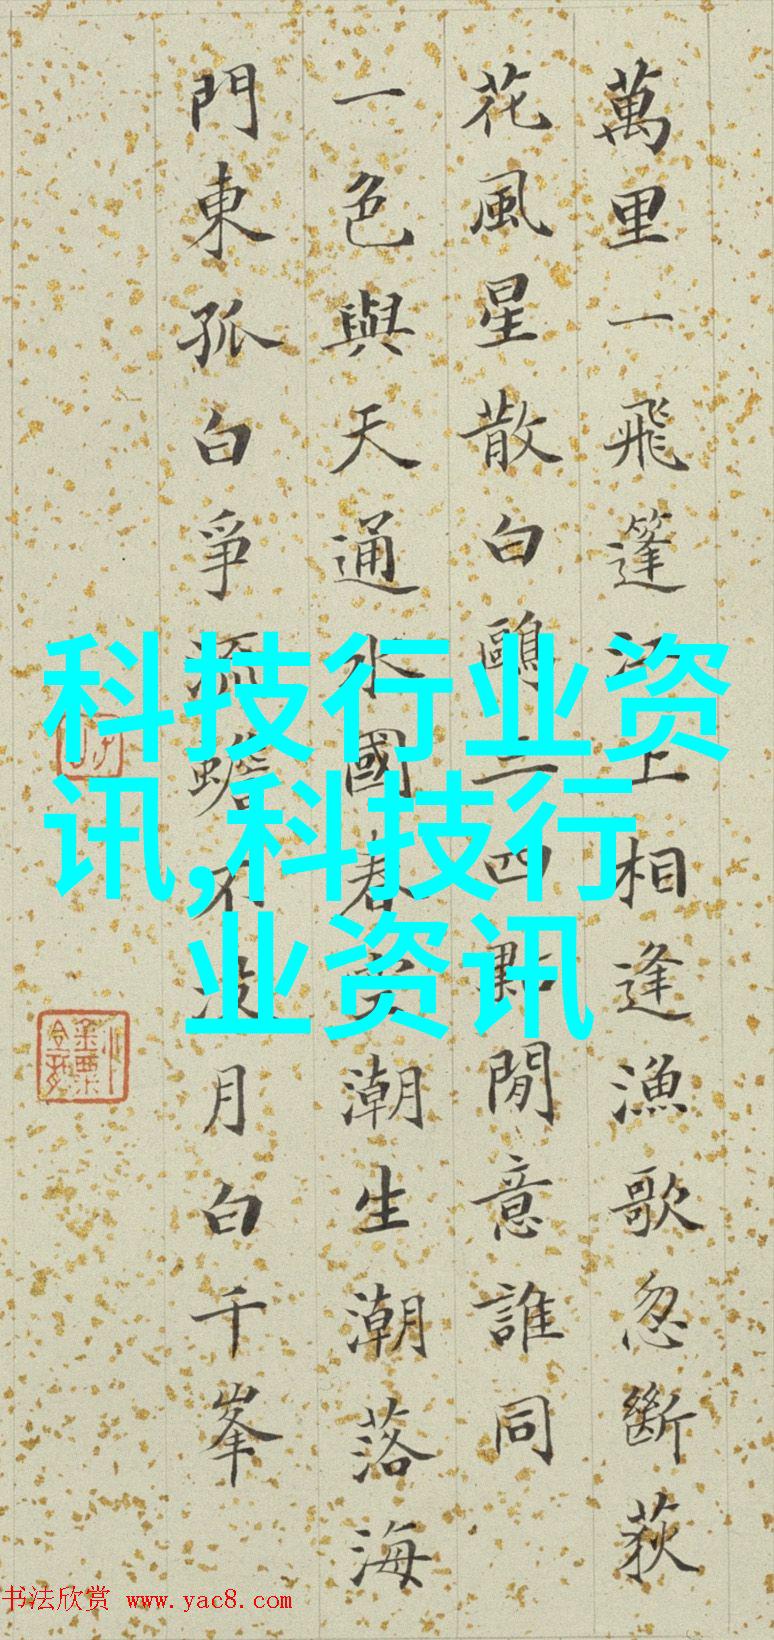 萬里一飛篷江上相逢漁歌忽斷荻
花風星散白鷗三四點閒意誰同
一色與天通水國春潮生潮落海
門東孤白爭流蟾不没月白千峯
科技行业资
讯,科技行
业资讯
书法欣赏 www.yac8.com